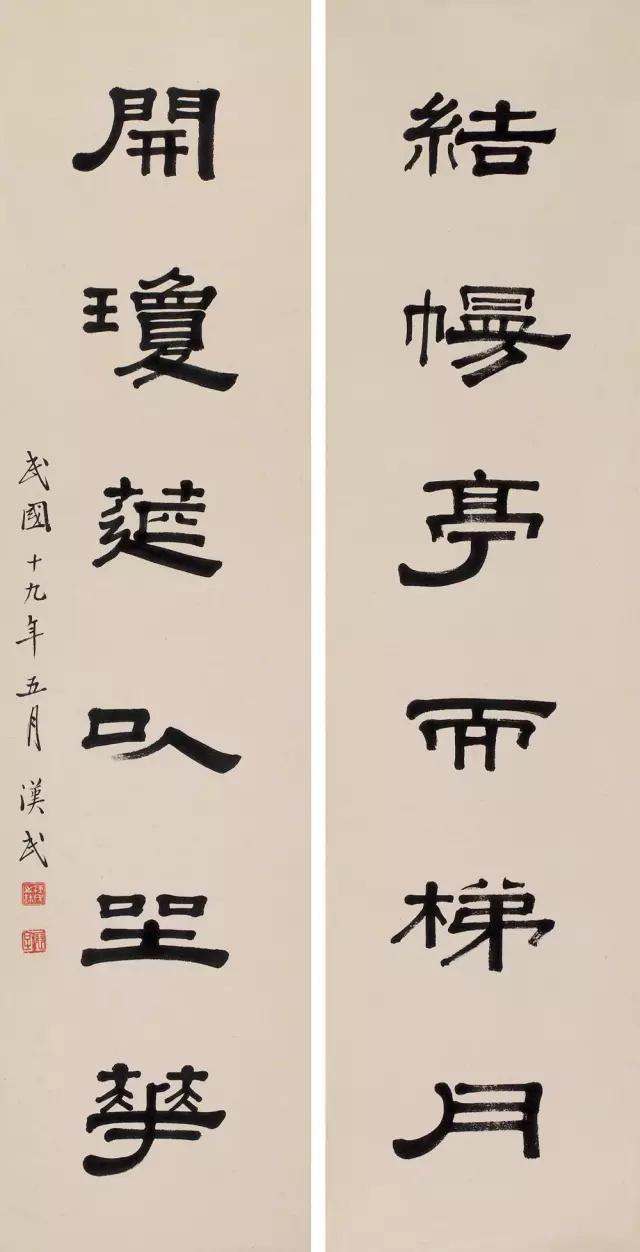 結幔亭而梯月
開瓊莚以坐華
民國十九年五月漢民